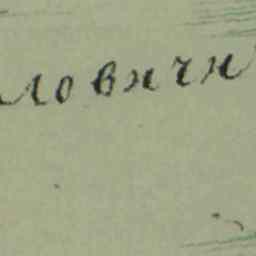 ловичи